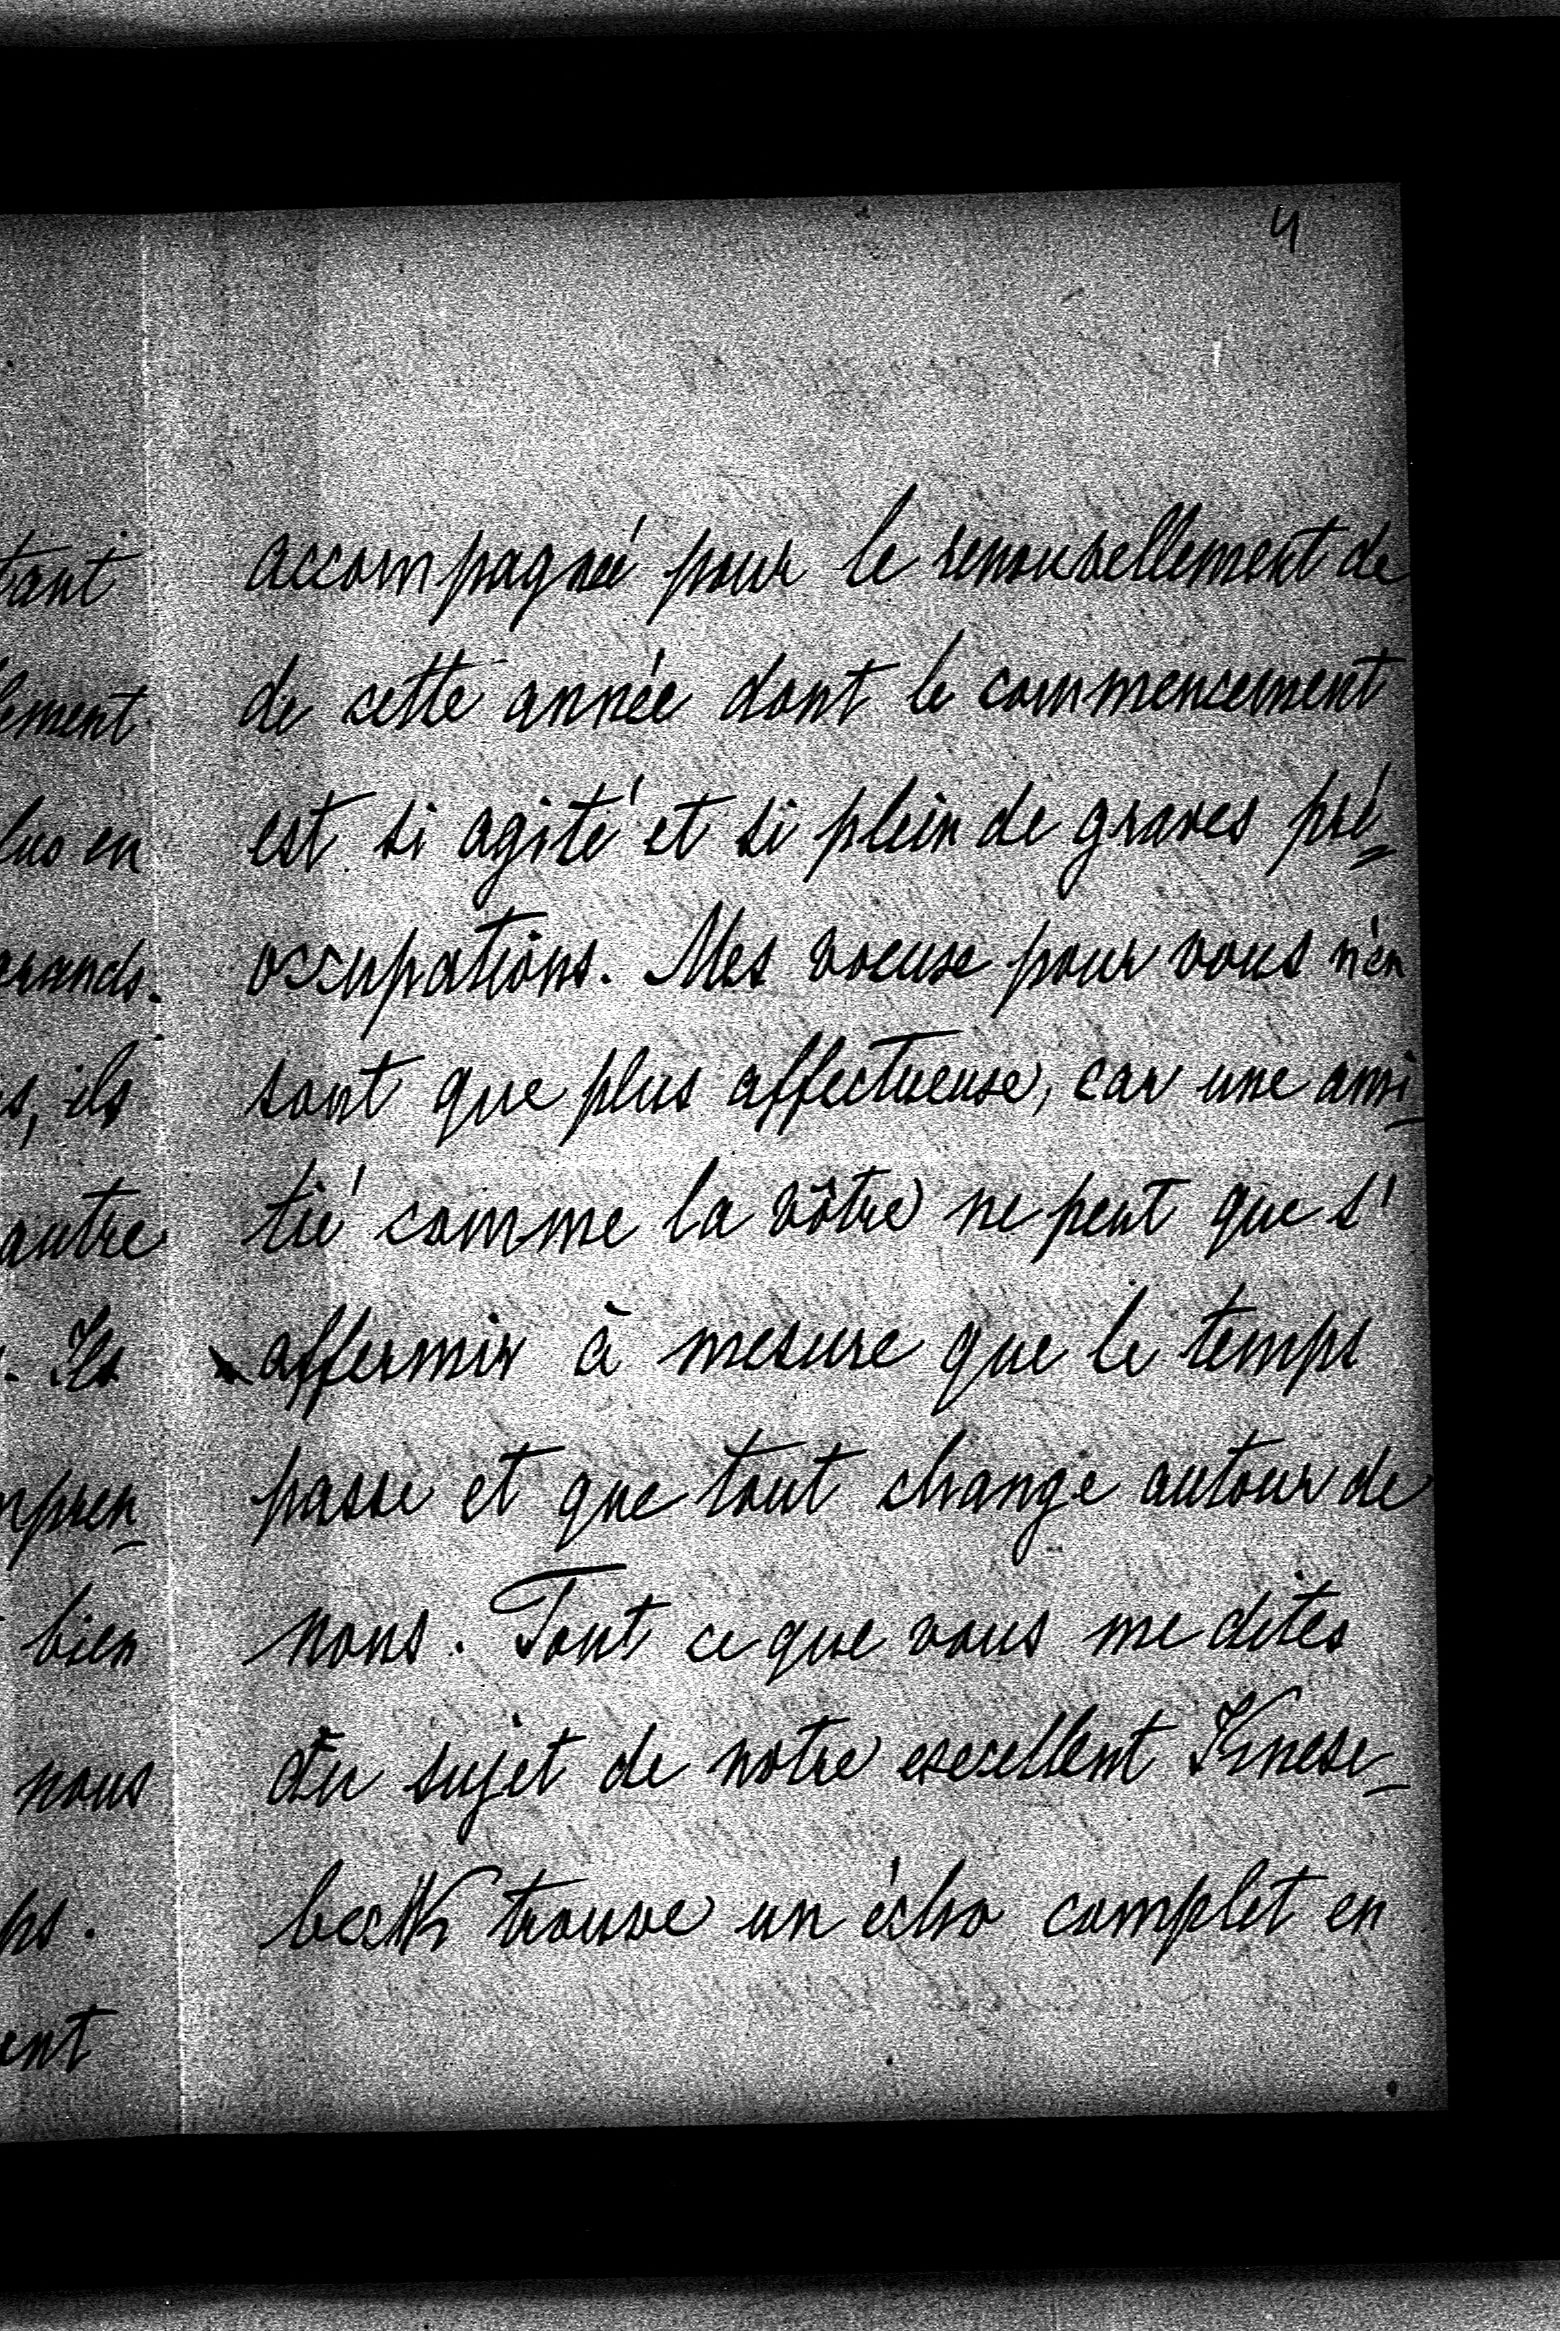 4
tant
lement
lus en
erands.
s, ils
autre
. Ils
npren-
bien
nous
ps.
ent
accompagnée pour le renouvellement de
de cette année dont le commencement
est si agité et si plein de graves pré=
occupations. Mes voeux pour vous n'en
sont que plus affectueuse, car une ami-
tié comme la vôtre ne peut que s'
affermir à mesure que le temps
passe et que tout change autour de
nous. Tout ce que vous me dites
du sujet de notre excellent Knese-
beck trouve un écho complet en